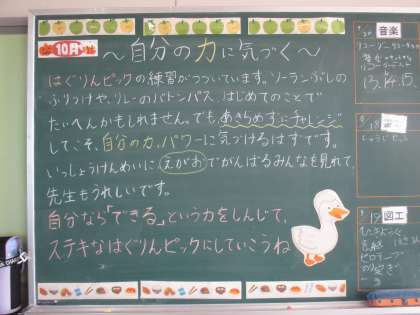 10月
～自分の力に気づく～
はぐりんピックの練習がつづいています。ソーランぶしの
ふりつけや、リレーのバトンパス。はじめてのことで
たいへんかもしれません。でも、あきらめずにチャレンジ
してこそ、自分の力、パワーに気づけるはずです。
いっしょうけんめいに、えがおでがんばるみんなを見れて、
先生もうれしいです。
自分なら「できる」という力をしんじて、
ステキなはぐりんピックにしていこうね
音楽
13.14.15.
図工